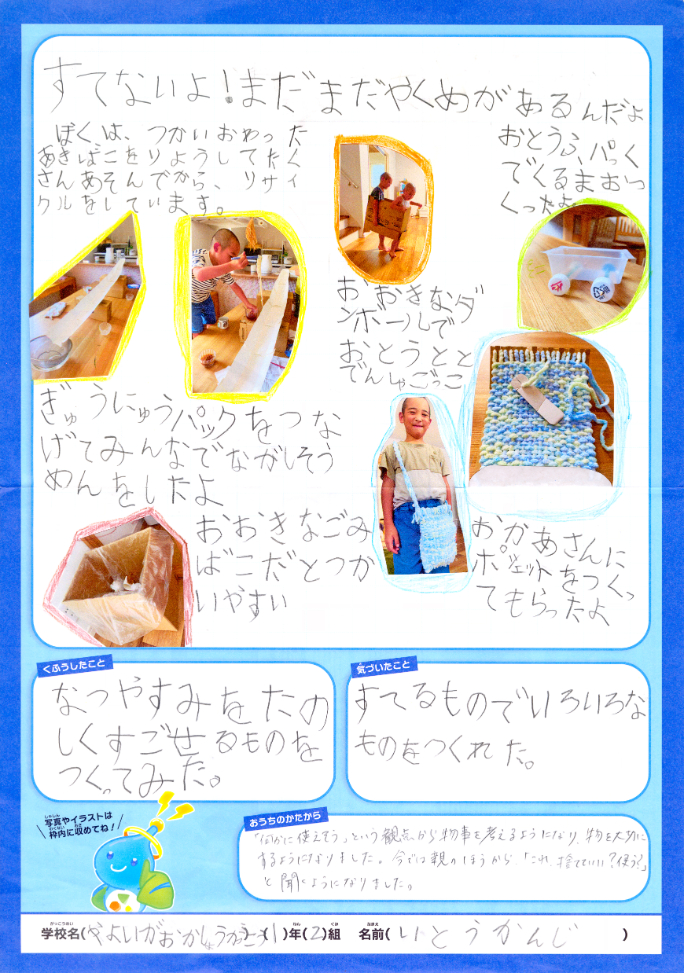 すてないよ!まだまだやくめがあるんだよ
ぼくは、つかいおわった
あきばこをりようしてたく
さんあそんでから、リサイ
クルをしています。
おとうふパック
でくるまおつ
くったよ
おおきなダ
ンボールで
おとうとと
でんしゃごっこ
ぎゅうにゅうパックをつな
げてみんなでながしそう
めんをしたよ
おおきなごみ
ばこだとつか
いやすい
おかあさんに
ポシェットをつくっ
てもらったよ
くふうしたこと
なつやすみをたの
しくすごせるものを
つくってみた。
気づいたこと
すてるものでいろいろな
ものをつくれた。
写真やイラストは
枠内に収めてね!
おうちのかたから
「何かに使えそう」という観点から物事を考えるようになり、物を大切に
するようになりました。今では親のほうから「これ、捨てていい?使う?」
と聞くようになりました。
学校名(やよいがおかしょうがっこう)(1)年(2)組 名前(いとうかんじ)